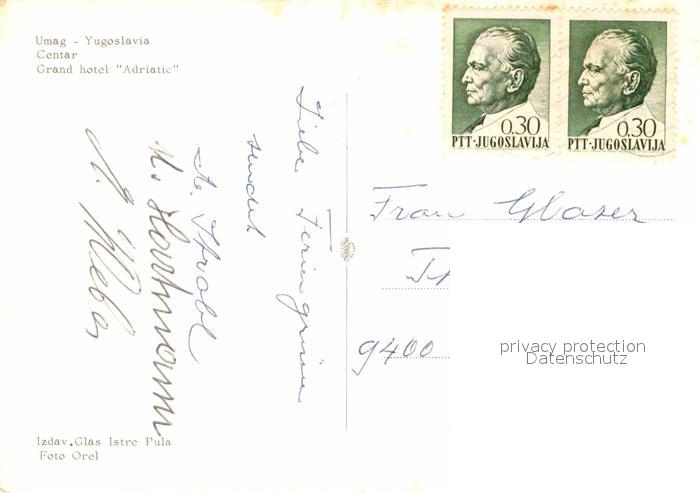 Umag - Yugoslavia
Centar
Grand hotel "Adriatic"
0.30
PTT-JUGOSLAVIJA
0.30
PTT-JUGOSLAVIJA
Liebe Feriengrüsse
sendet
A. Strobl
M. Hartmann
A. Weber
Frau Glaser
9400
privacy protection
Datenschutz
Izdav. Glas Istre Pula
Foto Orel